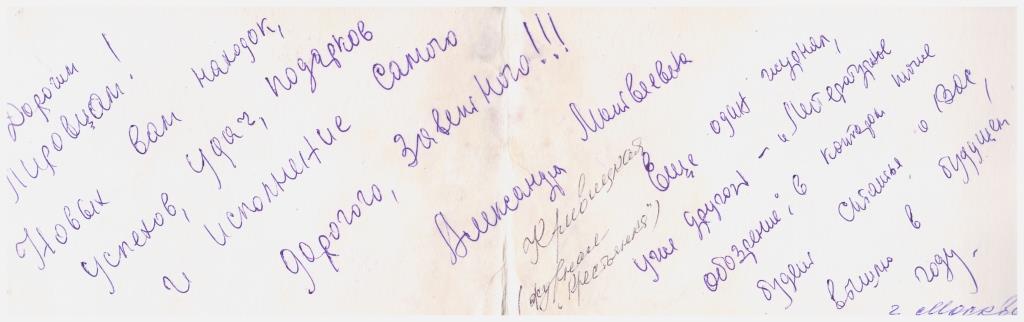 Дорогим
Лировцам!
Новых вам находок,
успехов, удач, подарков
и исполнение самого
дорогого, заветного!!!
Александра Матвеевна
Кривицкая
(журнал
"Крестьянка")
Еще один журнал,
уже другой – "Литературное
обозрение", в котором тоже
будет статья о Вас,
вышлю в будущем
году.
г. Москва